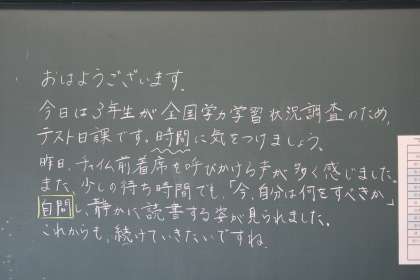 おはようございます.
今日は3年生が全国学力学習状況調査のため,
テスト日課です。時間に気をつけましょう。
昨日、チャイム前着席を呼びかける声が多く感じました。
また、少しの待ち時間でも、「今、自分は何をすべきか」
自問し、静かに読書する姿が見られました。
これからも、続けていきたいですね.